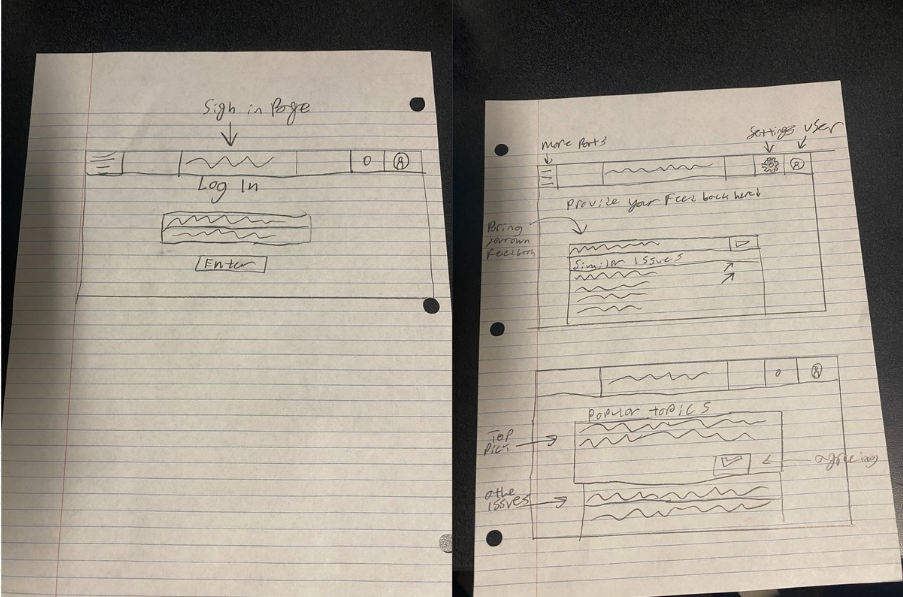 Sigh in Page
Log In
Enter
more Ports
Settings
User
Provize your Feedback here!
Bring
Feedback
Similar Issues
Popular topics
Top
Pict
agreeing
othe
issves